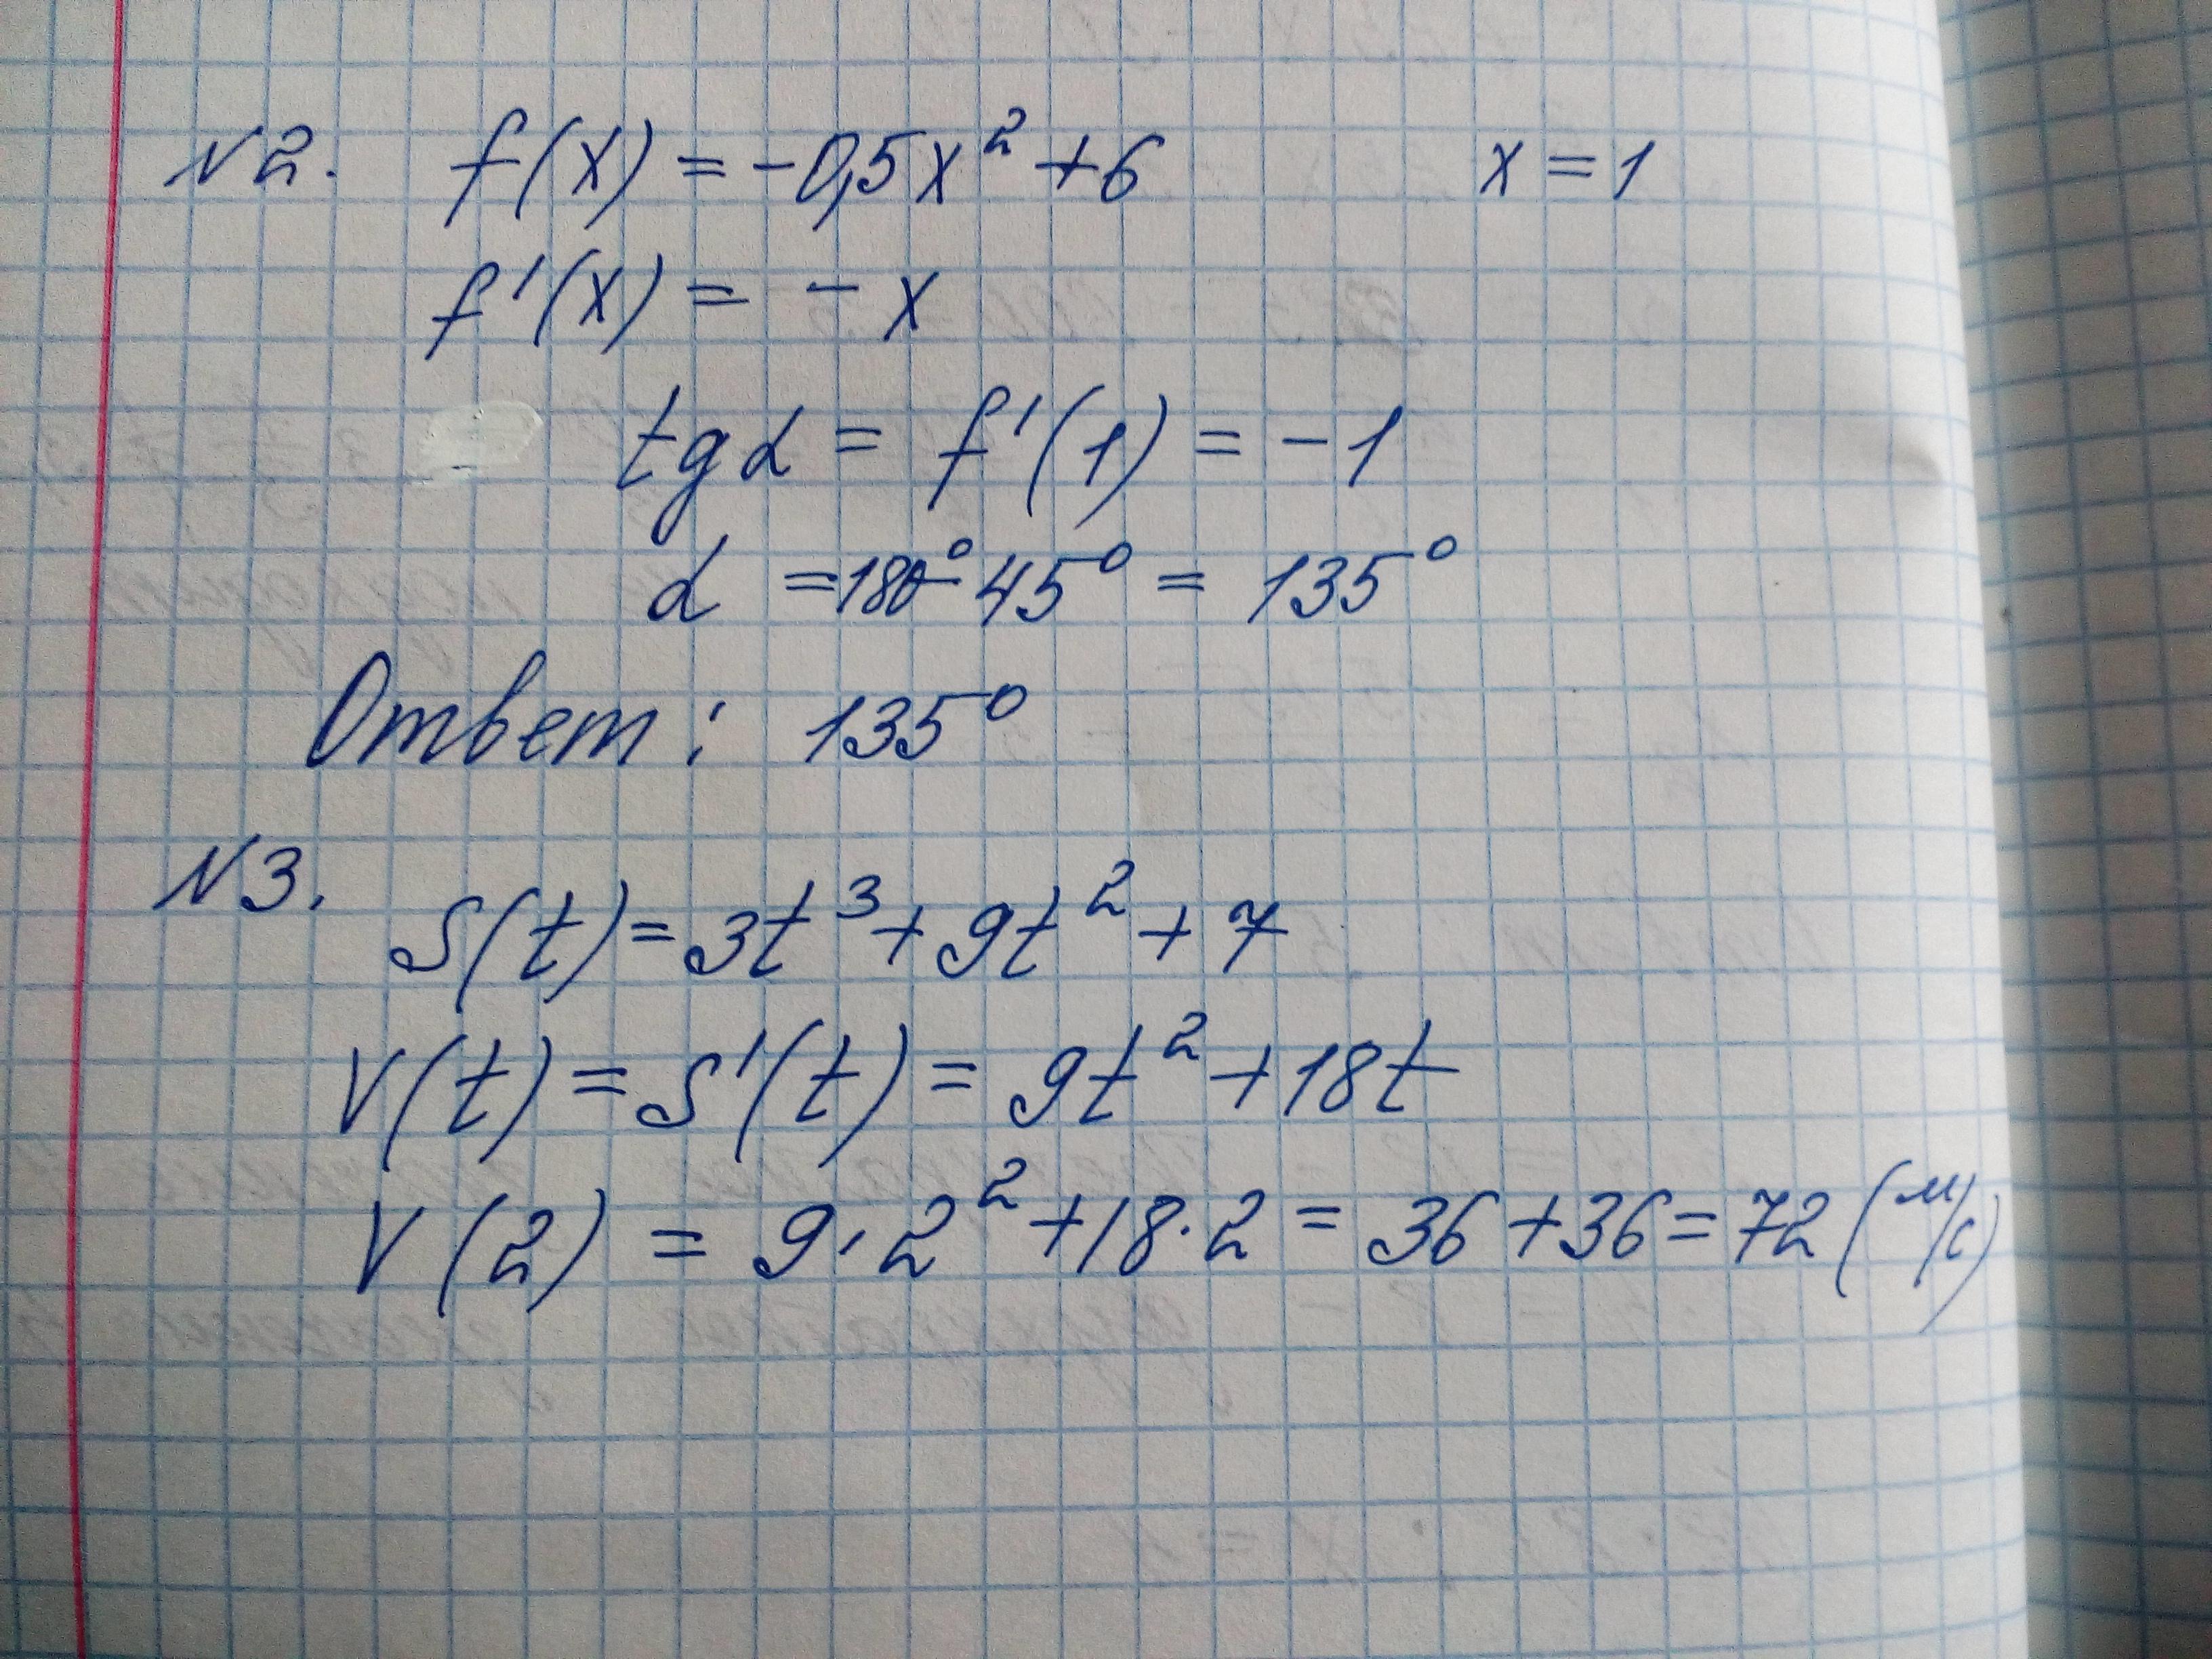 N2. f(x) = -0,5x² + 6 x = 1
f'(x) = - x
tg α = f'(1) = -1
α = 180° - 45° = 135°
Ответ: 135°
N3.
S(t) = 3t³ + 9t² + 7
V(t) = S'(t) = 9t² + 18t
V(2) = 9·2² + 18·2 = 36 + 36 = 72 (м/с)